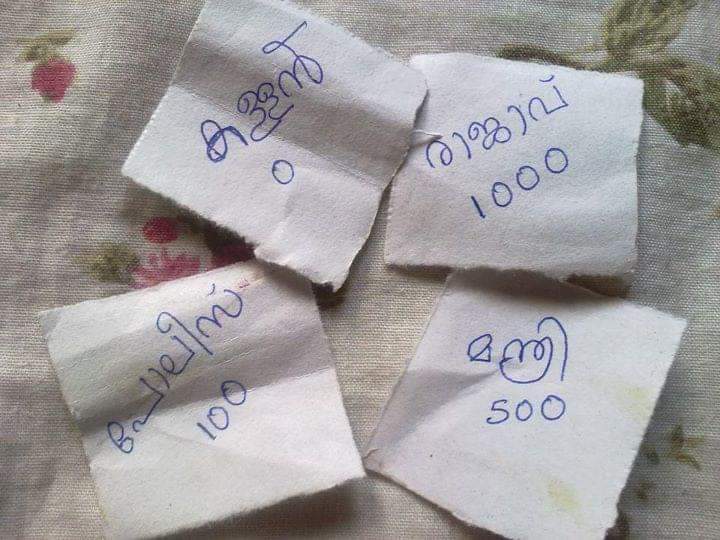 കള്ളൻ
0
രാജാവ്
1000
പോലീസ്
100
മന്ത്രി
500